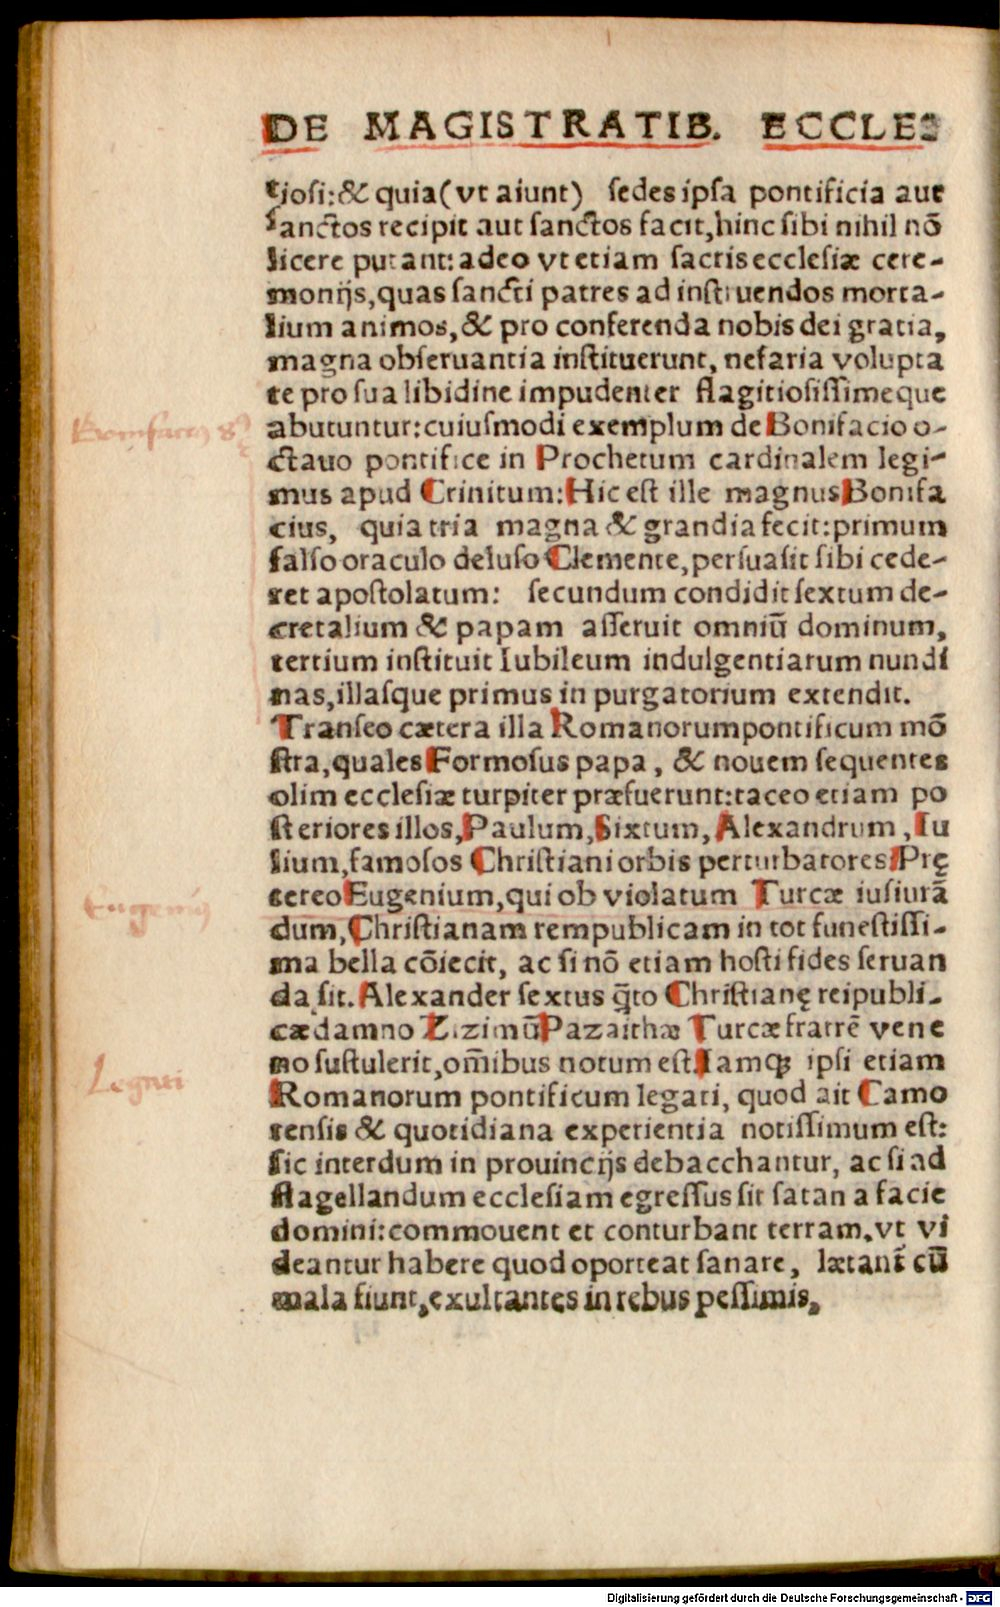 DE MAGISTRATIB. ECCLE:
tiosi: & quia (vt aiunt) sedes ipsa pontificia aut
sanctos recipit aut sanctos facit, hinc sibi nihil nō
licere putant: adeo vt etiam sacris ecclesiæ cere-
monijs, quas sancti patres ad instruendos morta-
lium animos, & pro conferenda nobis dei gratia,
magna obseruantia instituerunt, nefaria volupta
te pro sua libidine impudenter flagitiosissimeque
abutuntur: cuiusmodi exemplum de Bonifacio o-
Bonifacius 8
ctauo pontifice in Prochetum cardinalem legi-
mus apud Crinitum: Hic est ille magnus Bonifa
cius, quia tria magna & grandia fecit: primum
falso oraculo deluso Clemente, persuasit sibi cede-
ret apostolatum: secundum condidit sextum de-
cretalium & papam asseruit omniū dominum,
tertium instituit Iubileum indulgentiarum nundi
nas, illasque primus in purgatorium extendit.
Transeo cætera illa Romanorum pontificum mō
stra, quales Formosus papa, & nouem sequentes
olim ecclesiæ turpiter præfuerunt: taceo etiam po
steriores illos, Paulum, Sixtum, Alexandrum, Iu
lium, famosos Christiani orbis perturbatores: Prę
tereo Eugenium, qui ob violatum Turcæ iusiurā
Eugenius
dum, Christianam rempublicam in tot funestissi-
ma bella cōiecit, ac si nō etiam hosti fides seruan
da sit. Alexander sextus q̄to Christianę reipubli-
cæ damno Zizimū Pazaithæ Turcæ fratrē vene
no sustulerit, om̄ibus notum est. Iamq; ipsi etiam
Legati
Romanorum pontificum legati, quod ait Camo
tensis & quotidiana experientia notissimum est:
sic interdum in prouincijs debacchantur, ac si ad
flagellandum ecclesiam egressus sit satan a facie
domini: commouent et conturbant terram, vt vi
deantur habere quod oporteat sanare, lætant̄ cū
mala fiunt, exultantes in rebus pessimis,
Digitalisierung gefördert durch die Deutsche Forschungsgemeinschaft - DFG